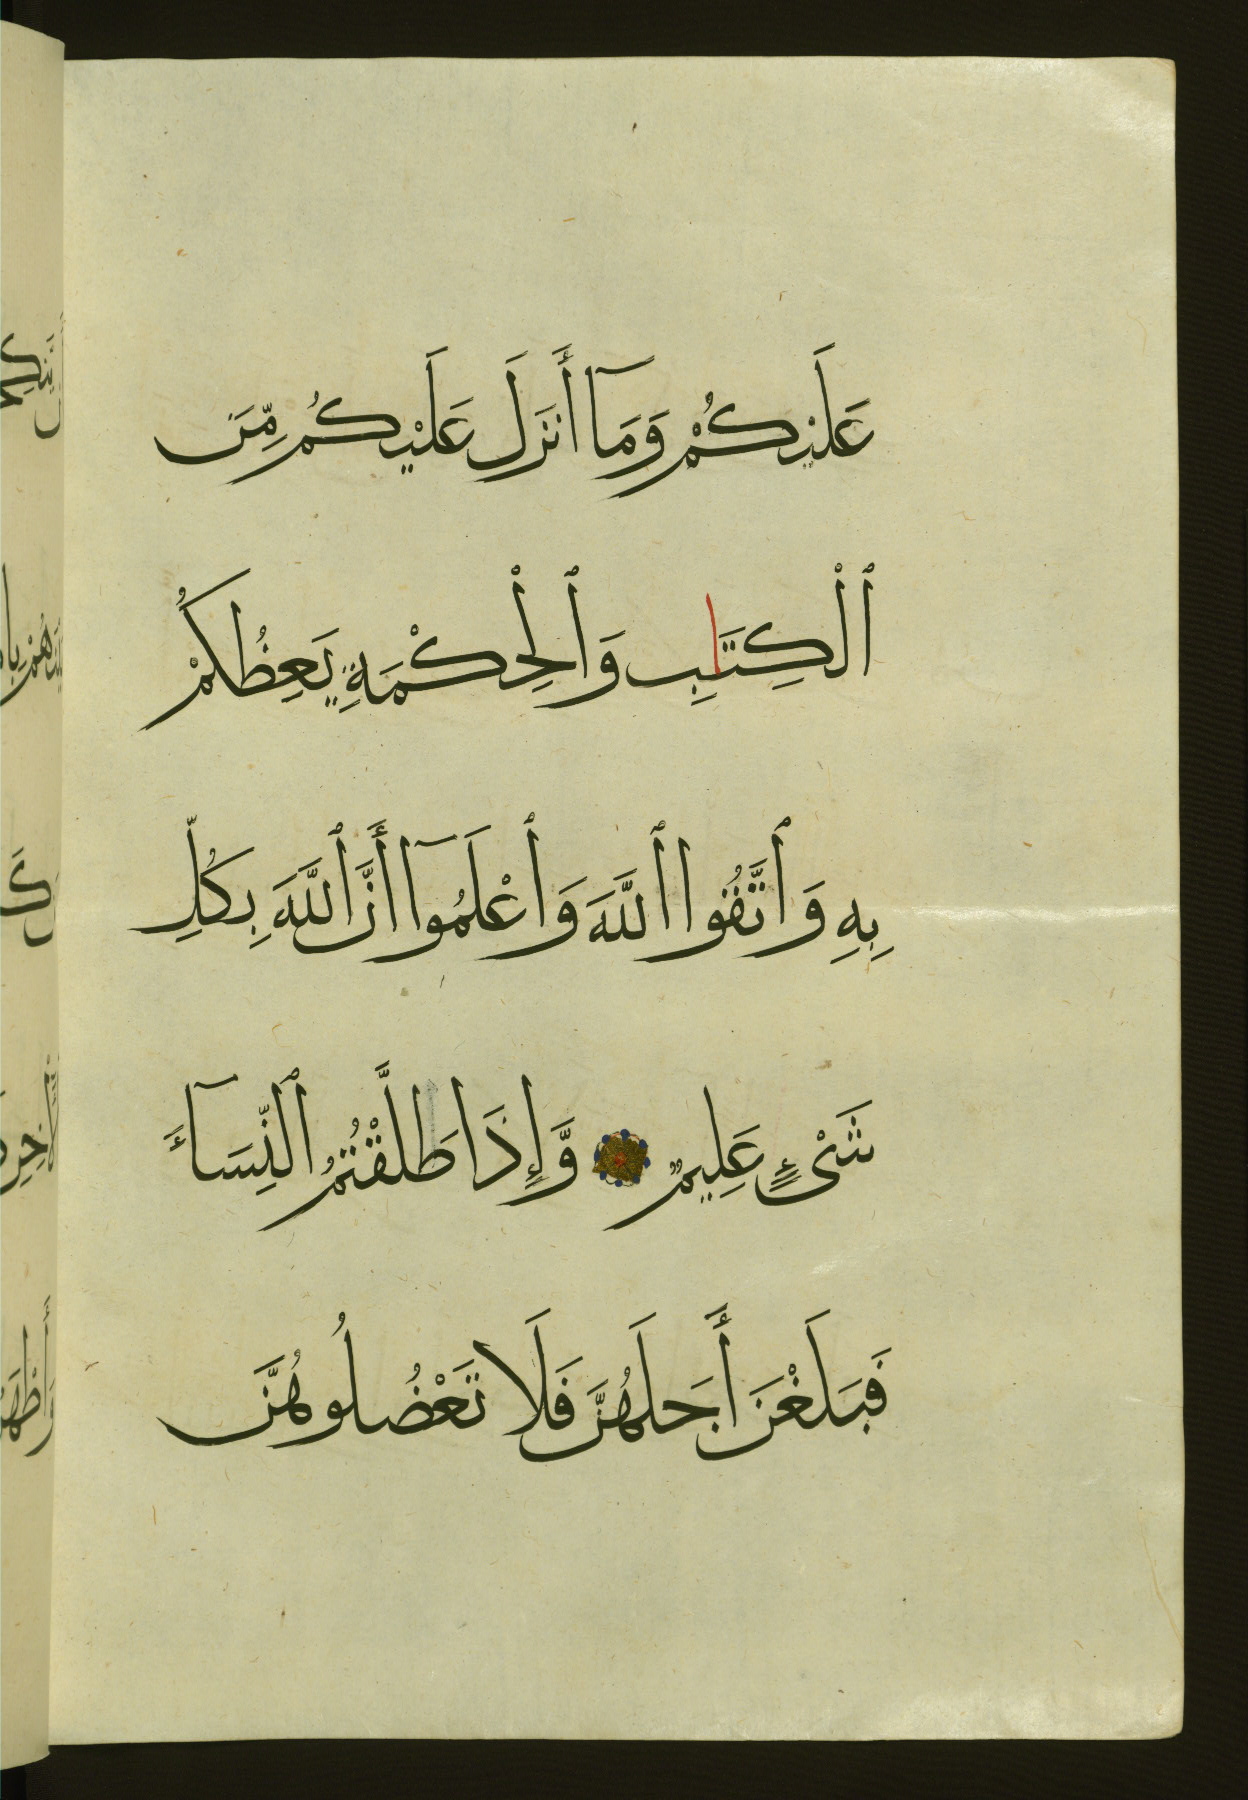 عَلَيْكُمْ وَمَآ أَنزَلَ عَلَيْكُم مِّنَ
ٱلْكِتَٰبِ وَٱلْحِكْمَةِ يَعِظُكُمْ
بِهِ وَٱتَّقُوا ٱللَّهَ وَٱعْلَمُوٓا أَنَّ ٱللَّهَ بِكُلِّ
شَىْءٍ عَلِيمٌ وَّإِذَا طَلَّقْتُمُ ٱلنِّسَآءَ
فَبَلَغْنَ أَجَلَهُنَّ فَلَا تَعْضُلُوهُنَّ